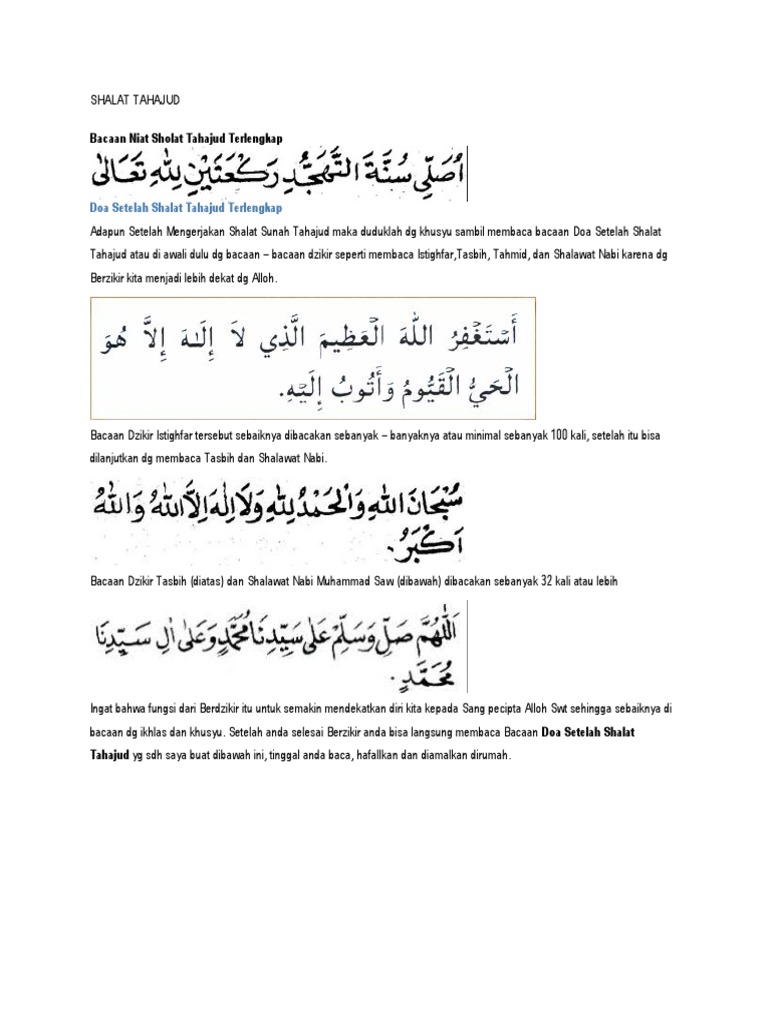 SHALAT TAHAJUD
Bacaan Niat Sholat Tahajud Terlengkap
اُصَلِّى سُنَّةَ التَّهَجُّدِ رَكْعَتَيْنِ لِلّٰهِ تَعَالٰى
Doa Setelah Shalat Tahajud Terlengkap
Adapun Setelah Mengerjakan Shalat Sunah Tahajud maka duduklah dg khusyu sambil membaca bacaan Doa Setelah Shalat
Tahajud atau di awali dulu dg bacaan – bacaan dzikir seperti membaca Istighfar,Tasbih, Tahmid, dan Shalawat Nabi karena dg
Berzikir kita menjadi lebih dekat dg Alloh.
أَسْتَغْفِرُ اللهَ الْعَظِيمَ الَّذِي لاَ إِلَـٰهَ إِلاَّ هُوَ
الْحَيُّ الْقَيُّومُ وَأَتُوبُ إِلَيْهِ.
Bacaan Dzikir Istighfar tersebut sebaiknya dibacakan sebanyak – banyaknya atau minimal sebanyak 100 kali, setelah itu bisa
dilanjutkan dg membaca Tasbih dan Shalawat Nabi.
سُبْحَانَ اللهِ وَالْحَمْدُ لِلّٰهِ وَلَا اِلٰهَ اِلَّا اللهُ وَاللهُ
اَكْبَرُ.
Bacaan Dzikir Tasbih (diatas) dan Shalawat Nabi Muhammad Saw (dibawah) dibacakan sebanyak 32 kali atau lebih
اَللّٰهُمَّ صَلِّ وَسَلِّمْ عَلٰى سَيِّدِنَا مُحَمَّدٍ وَعَلٰى اٰلِ سَيِّدِنَا
مُحَمَّدٍ.
Ingat bahwa fungsi dari Berdzikir itu untuk semakin mendekatkan diri kita kepada Sang pecipta Alloh Swt sehingga sebaiknya di
bacaan dg ikhlas dan khusyu. Setelah anda selesai Berzikir anda bisa langsung membaca Bacaan Doa Setelah Shalat
Tahajud yg sdh saya buat dibawah ini, tinggal anda baca, hafallkan dan diamalkan dirumah.